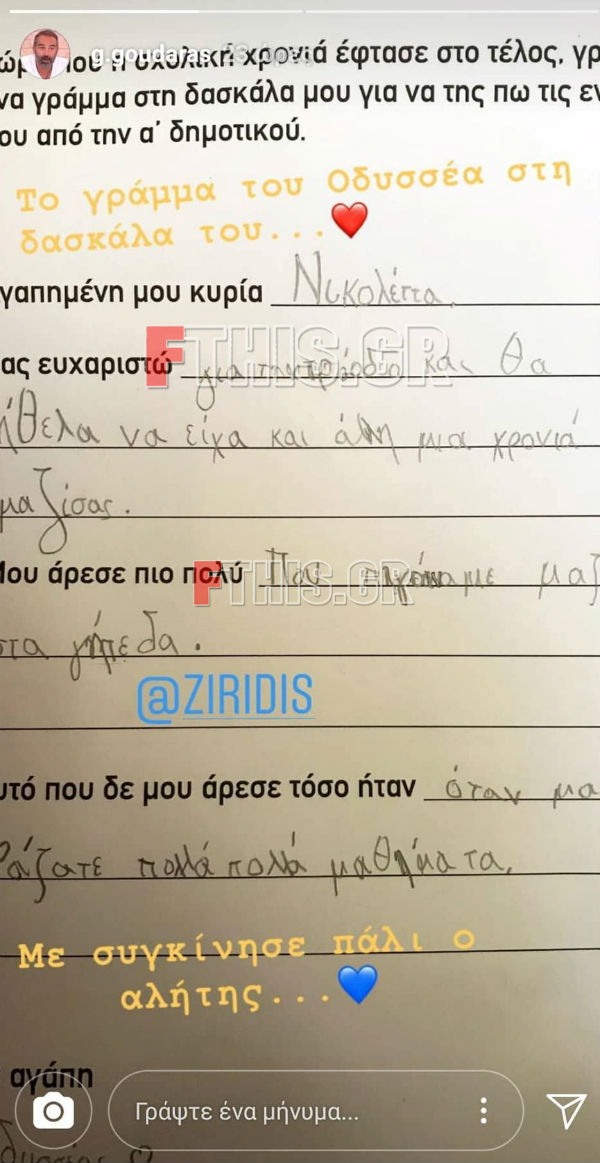 g.goudaras 23
ώρα που η σχολική χρονιά έφτασε στο τέλος, γρ
να γράμμα στη δασκάλα μου για να της πω τις εν
ου από την α΄ δημοτικού.
Το γράμμα του Οδυσσέα στη
δασκάλα του...❤️
γαπημένη μου κυρία Νικολέττα,
FTHIS.GR
ας ευχαριστώ για την πρόοδο και θα
ήθελα να είχα και άλλη μια χρονιά
μαζίσας.
Μου άρεσε πιο πολύ Που πηγέναμε μαζ
FTHIS.GR
στα γήπεδα.
@ZIRIDIS
υτό που δε μου άρεσε τόσο ήταν όταν μα
βάζατε πολλά πολλά μαθήματα.
Με συγκίνησε πάλι ο
αλήτης...💙
αγάπη
Γράψτε ένα μήνυμα...